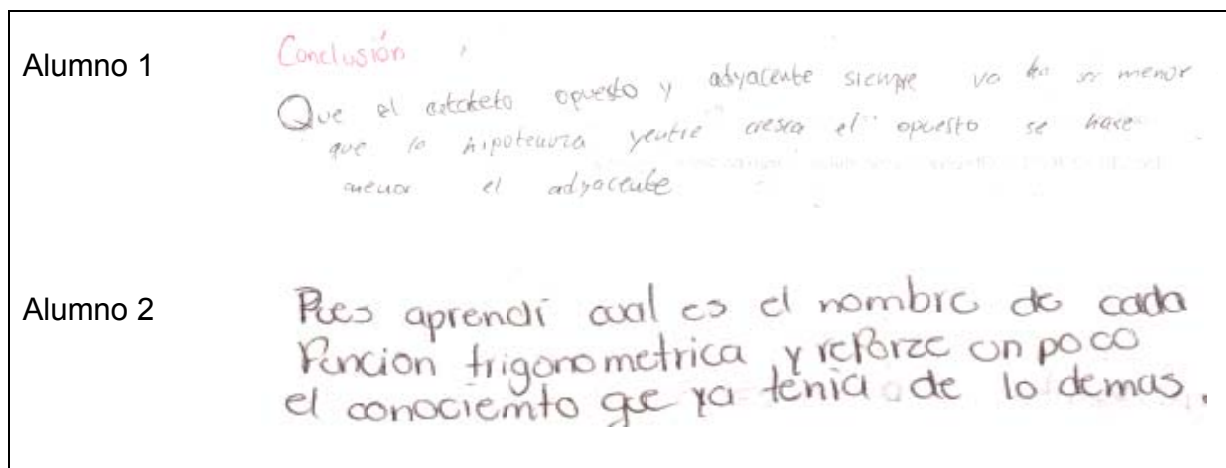 Alumno 1
Conclusión
Que el catateto opuesto y adyacente siempre va ha ser menor
que la hipotenuza yentre cresca el opuesto se hace
menor el adyacente
Alumno 2
Pues aprendi cual es el nombre de cada
Funcion trigonometrica y reforze un poco
el conociemto que ya tenia de lo demas.